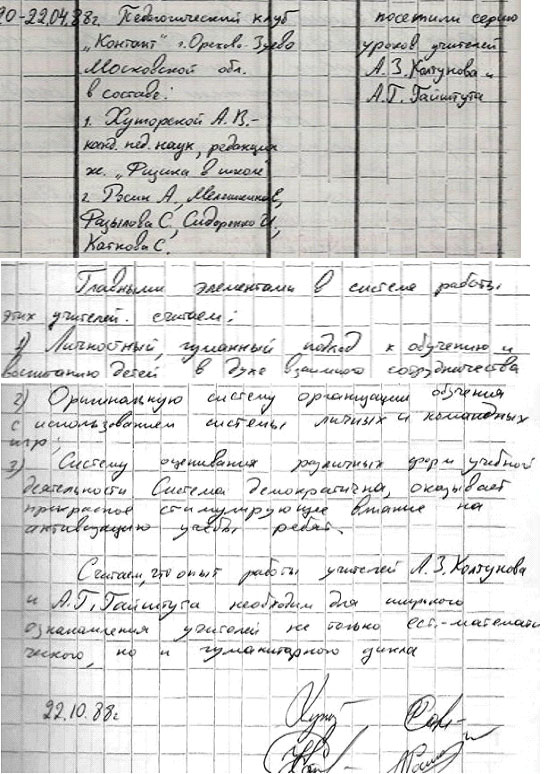 20-22.04.88г. Педагогический клуб посетили серию
„Контакт" г. Орехово-Зуево уроков учителей
Московской обл. А.З. Колтунова и
в составе: А.Г. Гайштута
1. Хуторской А.В.-
канд. пед. наук, редакция
ж. „Физика в школе"
2. Росин А, Мелешкина С,
Фазылова С, Сидоренко И,
Каткова С.
Главными элементами в системе работы
этих учителей. считаем:
1) Личностный, гуманный подход к обучению и
воспитанию детей в духе взаимного сотрудничества
2) Оригинальную систему организации обучения
с использованием системы личных и командных
игр;
3) Систему оценивания различных форм учебной
деятельности Система демократична, оказывает
прекрасное стимулирующее влияние на
активизацию учёбы ребят.
Считаем, что опыт работы учителей А.З. Колтунова
и А.Г. Гайштута необходим для широкого
ознакомления учителей не только ест.-математи
ческого, но и гуманитарного цикла
22.10.88г